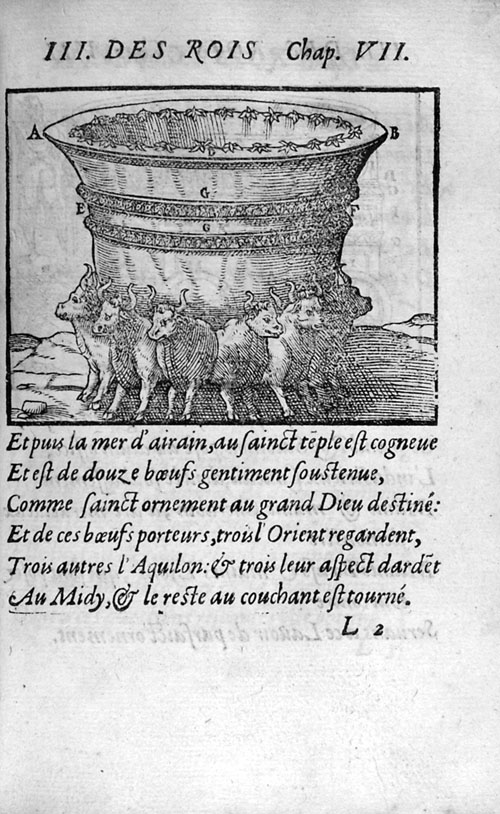 III. DES ROIS Chap. VII.
A B
D
G
E F
G K
Et puis la mer d'airain, au sainct tẽple est cogneue
Et est de douze bœufs gentiment soustenue,
Comme sainct ornement au grand Dieu destiné:
Et de ces bœufs porteurs, trois l'Orient regardent,
Trois autres l'Aquilon: & trois leur aspect dardẽt
Au Midy, & le reste au couchant est tourné.
L 2